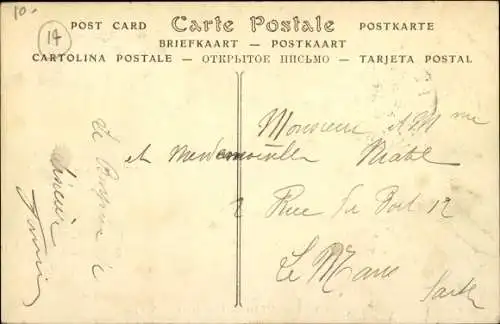 10.
14
POST CARD Carte Postale POSTKARTE
BRIEFKAART — POSTKAART
CARTOLINA POSTALE — ОТКРЫТОЕ ПИСЬМО — TARJETA POSTAL
Monsieur et Mme
et Mademoiselle
Rue de Port 12
Le Mans
Sarthe
sincère